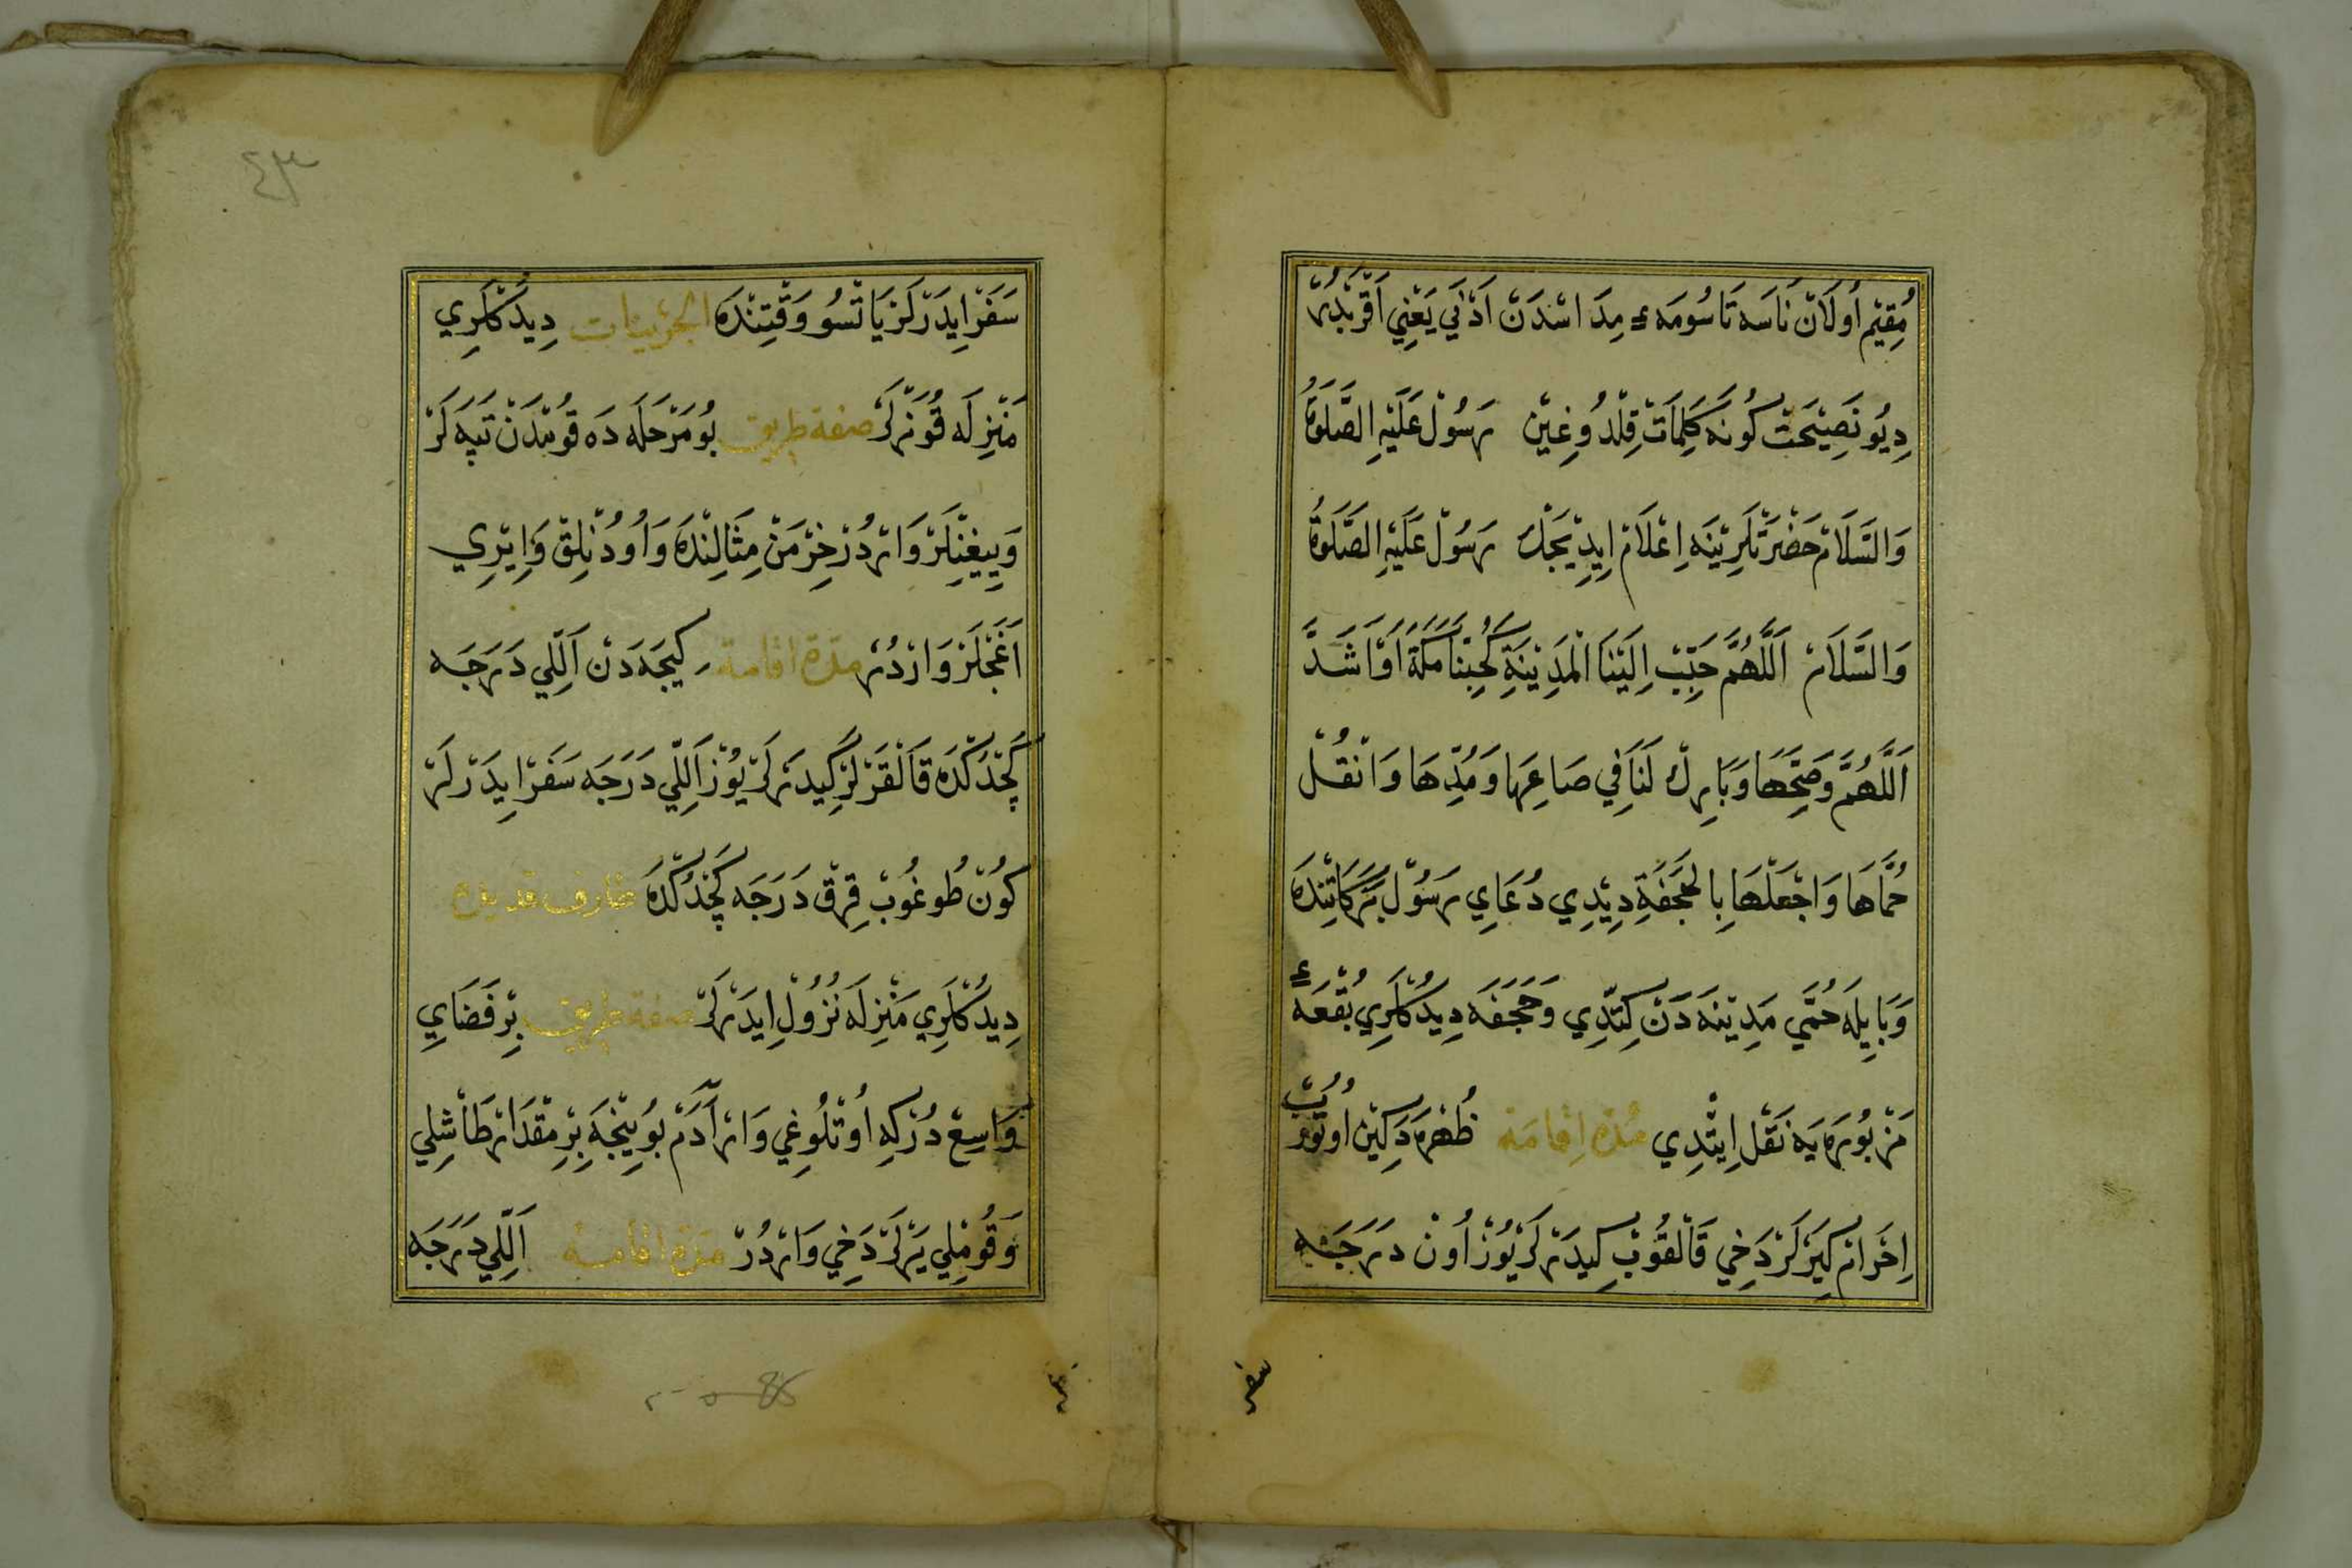 مُقِيمْ اُولَانْ نَاسَه تَاسُومَهءِ مِدَاسْدَنْ اَدْنَي يَعْنِي اَقْرَبْدُرْ
دِيُو نَصِيْحَتْ كُونَه كَلِمَاتْ قِلْدُوغِيْنْ رَسُولْ عَلَيْهِ الصَّلَوةُ
وَالسَّلَامْ حَضْرَتْلَرِيْنَه اِعْلَامْ اِيدِيْجَكْ رَسُولْ عَلَيْهِ الصَّلَوةُ
وَالسَّلَامْ اَللَّهُمَّ حَبِّبْ اِلَيْنَا الْمَدِيْنَةِ كَحُبِّنَا مَكَّةَ اَوْ اَشَدَّ
اَللَّهُمَّ وَصَحِّحْهَا وَبَارِكْ لَنَا فِي صَاعِهَا وَمُدِّهَا وَانْقُلْ
حُمَّاهَا وَاجْعَلْهَا بِالْجَحْفَةِ دِيْدِي دُعَايِ رَسُولْ بَرَكَاتِنْدَه
وَبَايِلَه حُمَّي مَدِيْنَه دَنْ كِتْدِي وَجَحْفَه دِيدُكْلَرِي بُقْعَهءِ
مَزْبُورَه يَه نَقْلْ اِيتْدِي مُدَّةِ اِقَامَه ظُهْرَه دَكِيْنْ اُوتُورُبْ
اِحْرَامْ كِيَرْلَرْ دَخِي قَالْقُوبْ كِيدَرْلَرْ يُوزْ اُونْ دَرَجَه
سفر
سَفَرْ اِيدَرْلَرْ يَاتْسُو وَقْتِنْدَه الجرينات دِيدُكْلَرِي
مَنْزِلَه قُونَرْلَرْ صفة طريق بُو مَرْحَلَه دَه قُومْدَنْ تَپَه لَرْ
وَيِيغِنْلَرْ وَارْدُرْ خِرْمَنْ مِثَالِنْدَه وَاُودُنْلِقْ وَاِيْرِي
اَغَجْلَرْ وَارْدُرْ مدة اقامة كِيجَه دَنْ اَللِّي دَرَجَه
كَچْدُكْدَه قَالْقَرْلَرْ كِيدَرْلَرْ يُوزْ اَللِّي دَرَجَه سَفَرْ اِيدَرْلَرْ
كُونْ طُوغُوبْ قِرْقْ دَرَجَه كَچْدُكْدَه طارف قديد
دِيدُكْلَرِي مَنْزِلَه نُزُولْ اِيدَرْلَرْ صفة طريق بِرْ فَضَايِ
وَاسِعْ دُرْكِه اُوتْلُوغِي وَارْ آدَمْ بُويِنْجَه بِرْ مِقْدَارْ طَاشْلِي
وَقُومْلِي يَرْلَرْ دَخِي وَارْدُرْ مدة اقامة اَللِّي دَرَجَه
٤٣